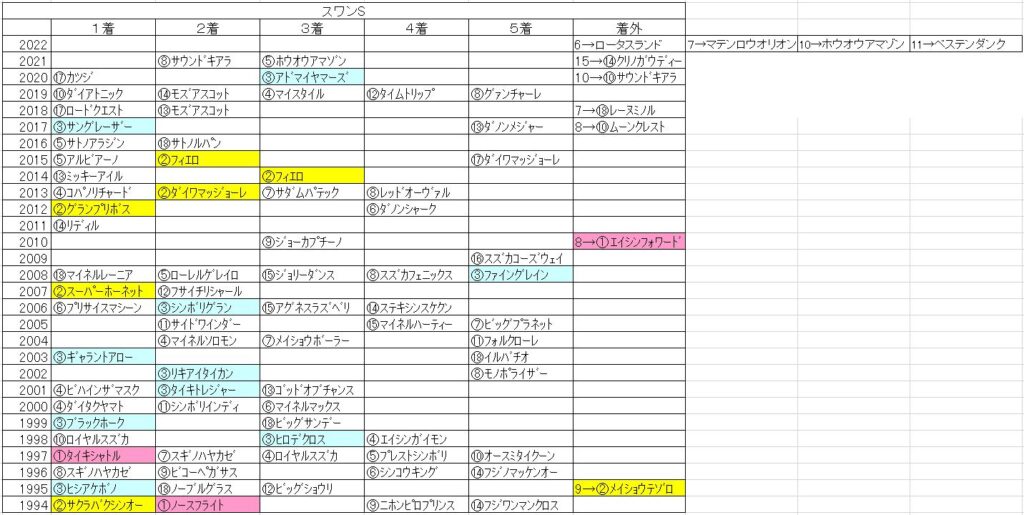 スワンS
１着 ２着 ３着 ４着 ５着 着外
2022 6→ロータスランド 7→マテンロウオリオン 10→ホウオウアマゾン 11→ベステンダンク
2021 ⑧サウンドキアラ ⑤ホウオウアマゾン 15→⑭クリノガウディー
2020 ⑰カツジ ③アドマイヤマーズ 10→⑩サウンドキアラ
2019 ⑩ダイアトニック ⑭モズアスコット ④マイスタイル ⑫タイムトリップ ⑧グァンチャーレ
2018 ⑰ロードクエスト ⑬モズアスコット 7→⑱レーヌミノル
2017 ③サングレーザー ⑬ダノンメジャー 8→⑩ムーンクレスト
2016 ⑤サトノアラジン ⑱サトノルパン
2015 ⑤アルビアーノ ②フィエロ ⑰ダイワマッジョーレ
2014 ⑬ミッキーアイル ②フィエロ
2013 ④コパノリチャード ②ダイワマッジョーレ ⑦サダムパテック ⑧レッドオーヴァル
2012 ②グランプリボス ⑥ダノンシャーク
2011 ⑭リディル
2010 ⑨ジョーカプチーノ 8→①エイシンフォワード
2009 ⑯スズカコーズウェイ
2008 ⑱マイネルレーニア ⑤ローレルゲレイロ ⑮ジョリーダンス ⑧スズカフェニックス ③ファイングレイン
2007 ②スーパーホーネット ⑫フサイチリシャール
2006 ⑥プリサイスマシーン ③シンボリグラン ⑮アグネスラズベリ ⑭ステキシンスケクン
2005 ⑪サイドワインダー ⑮マイネルハーティー ⑦ビッグプラネット
2004 ④マイネルソロモン ⑦メイショウボーラー ⑪フォルクローレ
2003 ③ギャラントアロー ⑱イルバチオ
2002 ③リキアイタイカン ⑧モノポライザー
2001 ④ビハインザマスク ③タイキトレジャー ⑬ゴッドオブチャンス
2000 ④ダイタクヤマト ⑪シンボリインディ ⑥マイネルマックス
1999 ③ブラックホーク ⑱ビッグサンデー
1998 ⑩ロイヤルスズカ ③ヒロデクロス ④エイシンガイモン
1997 ①タイキシャトル ⑦スギノハヤカゼ ④ロイヤルスズカ ⑤プレストシンボリ ⑩オースミタイクーン
1996 ⑧スギノハヤカゼ ⑨ビコーペガサス ⑥シンコウキング ⑭フジノマッケンオー
1995 ③ヒシアケボノ ⑱ノーブルグラス ⑫ビッグショウリ 9→②メイショウテゾロ
1994 ②サクラバクシンオー ①ノースフライト ⑨ニホンピロプリンス ⑭フジワンマンクロス